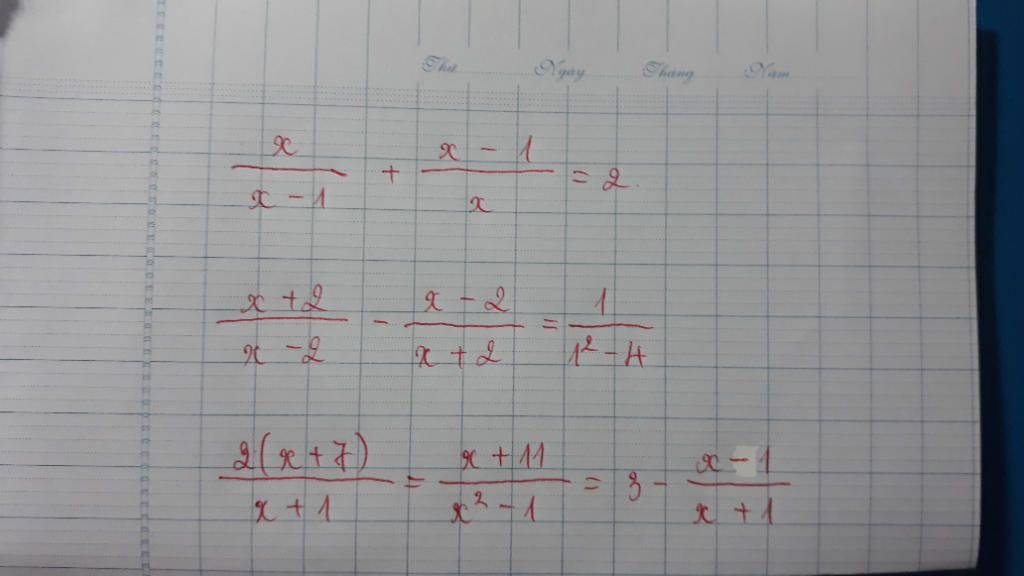 Thứ Ngày Tháng Năm
x/(x - 1) + (x - 1)/x = 2.
(x + 2)/(x - 2) - (x - 2)/(x + 2) = 1/(1² - 4)
2(x + 7)/(x + 1) = (x + 11)/(x² - 1) = 3 - (x - 1)/(x + 1)